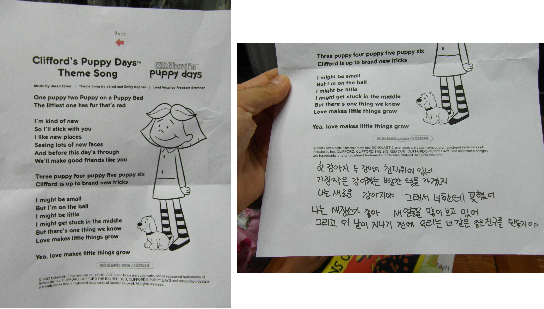 Back
Clifford's Puppy Days™
Theme Song
Clifford's
puppy days
One puppy two Puppy on a Puppy Bed
The littlest one has fur that's red
I'm kind of new
So I'll stick with you
I like new places
Seeing lots of new faces
And before this day's through
We'll make good friends like you
Three puppy four puppy five puppy six
Clifford is up to brand new tricks
I might be small
But I'm on the ball
I might be little
I might get stuck in the middle
But there's one thing we know
Love makes little things grow
Yes, love makes little things grow
Three puppy four puppy five puppy six
Clifford is up to brand new tricks
I might be small
But I'm on the ball
I might be little
I might get stuck in the middle
But there's one thing we know
Love makes little things grow
Yea, love makes little things grow
한 강아지 두 강아지 침대위에 있네
강아지는 빨간 털을 가졌지
나는 새로운 강아지야 그래서 너한테
나는 새장소가 좋아 새 얼굴을 많이 보고 있어
그리고 이 날이 지나기 전에 우리는 너같은 좋은친구를